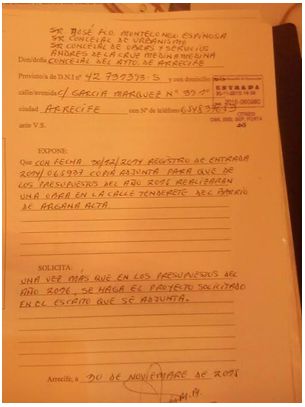 SR JOSÉ FCO. MONTELONGO ESPINOSA
SR CONCEJAL DE URBANISMO
SR CONCEJAL DE OBRAS Y SERVICIOS
ANDRES DE LA CRUZ
Don/doña CONCEJAL DEL AYTO. DE ARRECIFE
Provisto/a de D.N.I nº 42 S y con domicilio
calle/avenida C/ GARCIA MARQUEZ Nº
ciudad ARRECIFE con Nº de teléfono
ENTRADA
ante V.S.
EXPONE:
QUE CON FECHA 30/12/2014 REGISTRO DE ENTRADA
COPIA ADJUNTA PARA QUE DE
LOS PRESUPUESTOS DEL AÑO 2015 REALIZARAN
UNA OBRA EN LA CALLE TENDERETE DEL BARRIO
DE ARGANA ALTA.
SOLICITA:
UNA VEZ MÁS QUE EN LOS PRESUPUESTOS DEL
AÑO 2016, SE HAGA EL PROYECTO SOLICITADO
EN EL ESCRITO QUE SE ADJUNTA.
Arrecife, a 30 DE NOVIEMBRE DE 2015